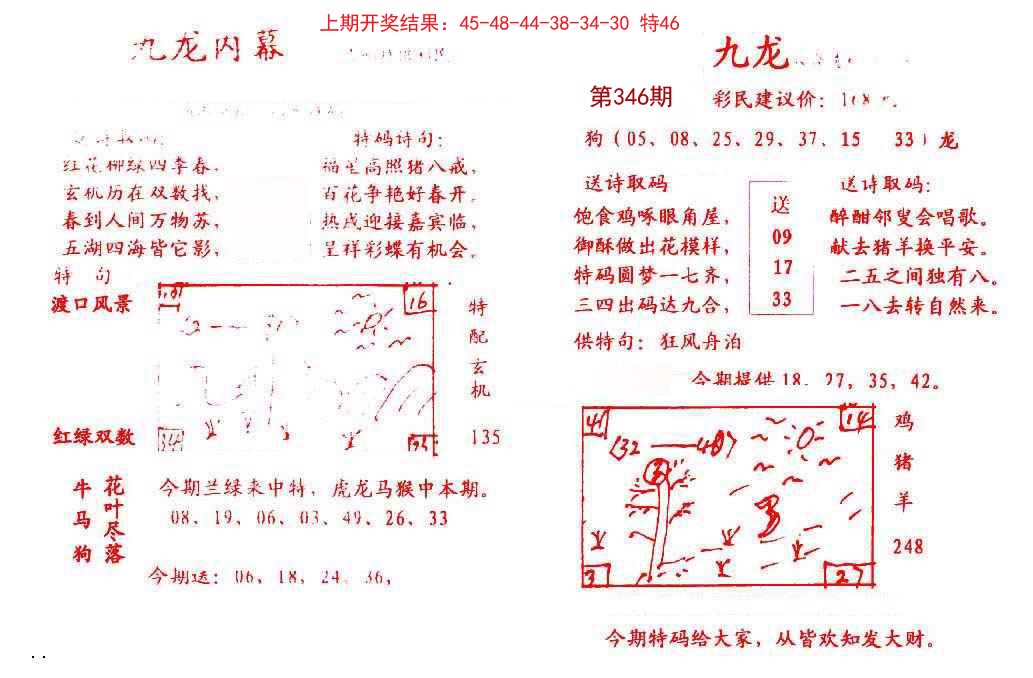 上期开奖结果：45-48-44-38-34-30 特46
九龙内幕
特码诗句：
红花柳绿四季春，
玄机历在双数找，
春到人间万物苏，
五湖四海皆它影，
福星高照猪八戒，
百花争艳好春开，
热戌迎接嘉宾临，
呈祥彩蝶有机会。
特 句
渡口风景
红绿双数
16
特配玄机
135
牛马狗
花叶尽落
今期兰绿来中特，虎龙马猴中本期。
08、19、06、03、49、26、33
今期送：06、18、24、36，
九龙
第346期
彩民建议价：
狗（05、08、25、29、37、15 33）龙
送诗取码
饱食鸡啄眼角屋，
御酥做出花模样，
特码圆梦一七齐，
三四出码达九合，
送
09
17
33
送诗取码：
醉酣邻叟会唱歌。
献去猪羊换平安。
二五之间独有八。
一八去转自然来。
供特句：狂风舟泊
今期提供18、27，35，42。
41
14
(32——48)
27
鸡
猪
羊
248
今期特码给大家，从皆欢知发大财。